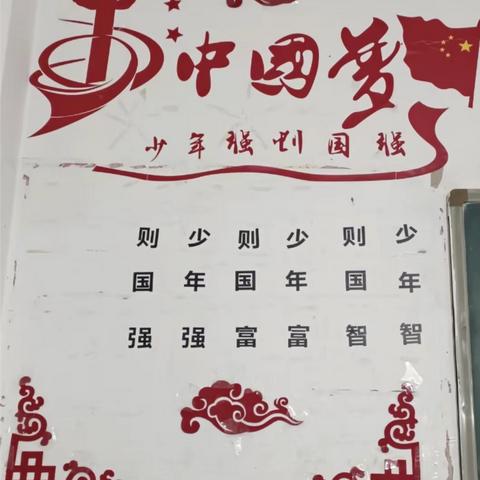 中國夢
少年强则国强
少年智
则国智
少年富
则国富
少年强
则国强